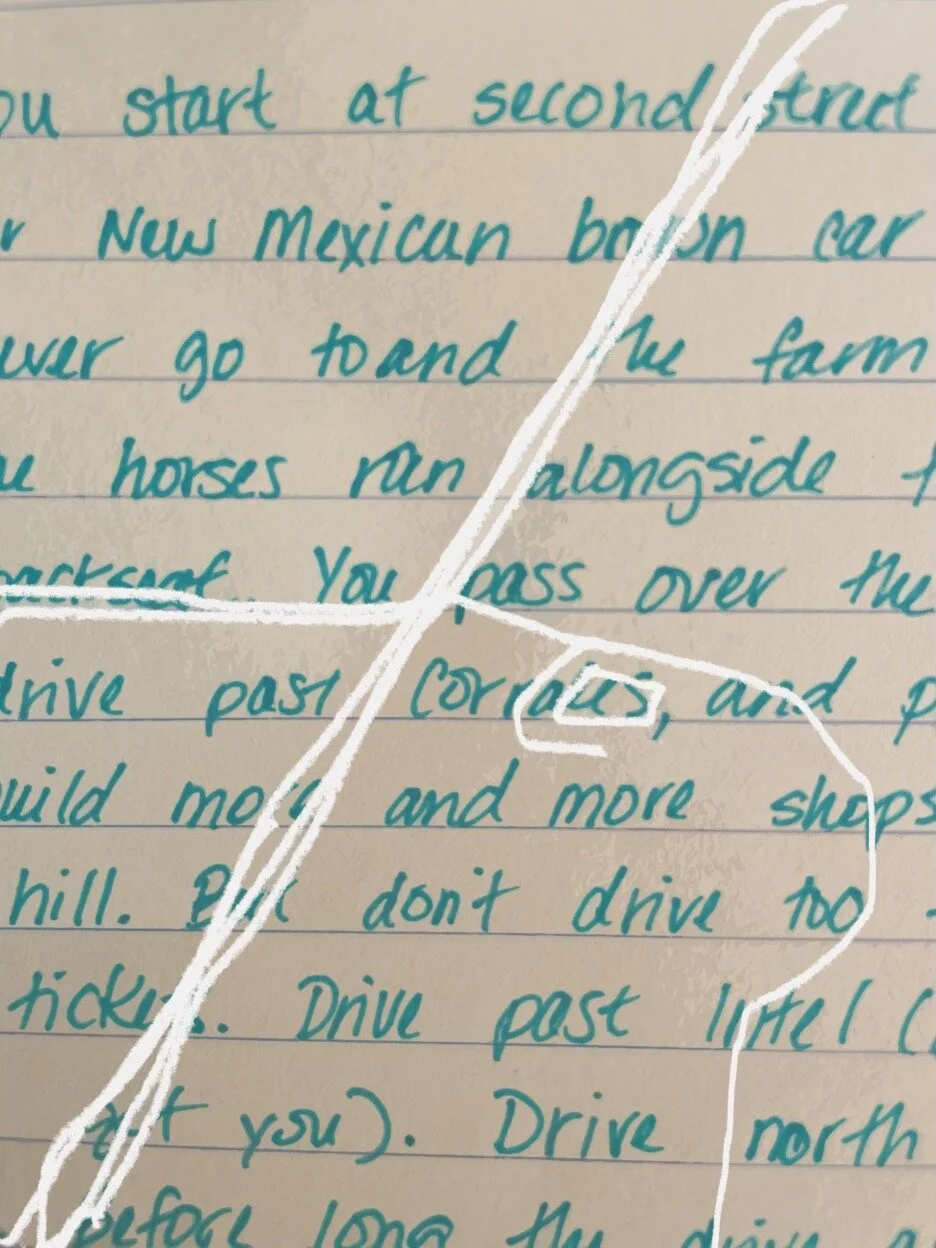 ou start at second street
r New Mexican brown car
ver go to and the farm
horses run alongside
backseat. You pass over the
drive past Corrales, and p
uild more and more shops
hill. But don't drive too
ticket. Drive past Intel (
you). Drive north
before long the drive